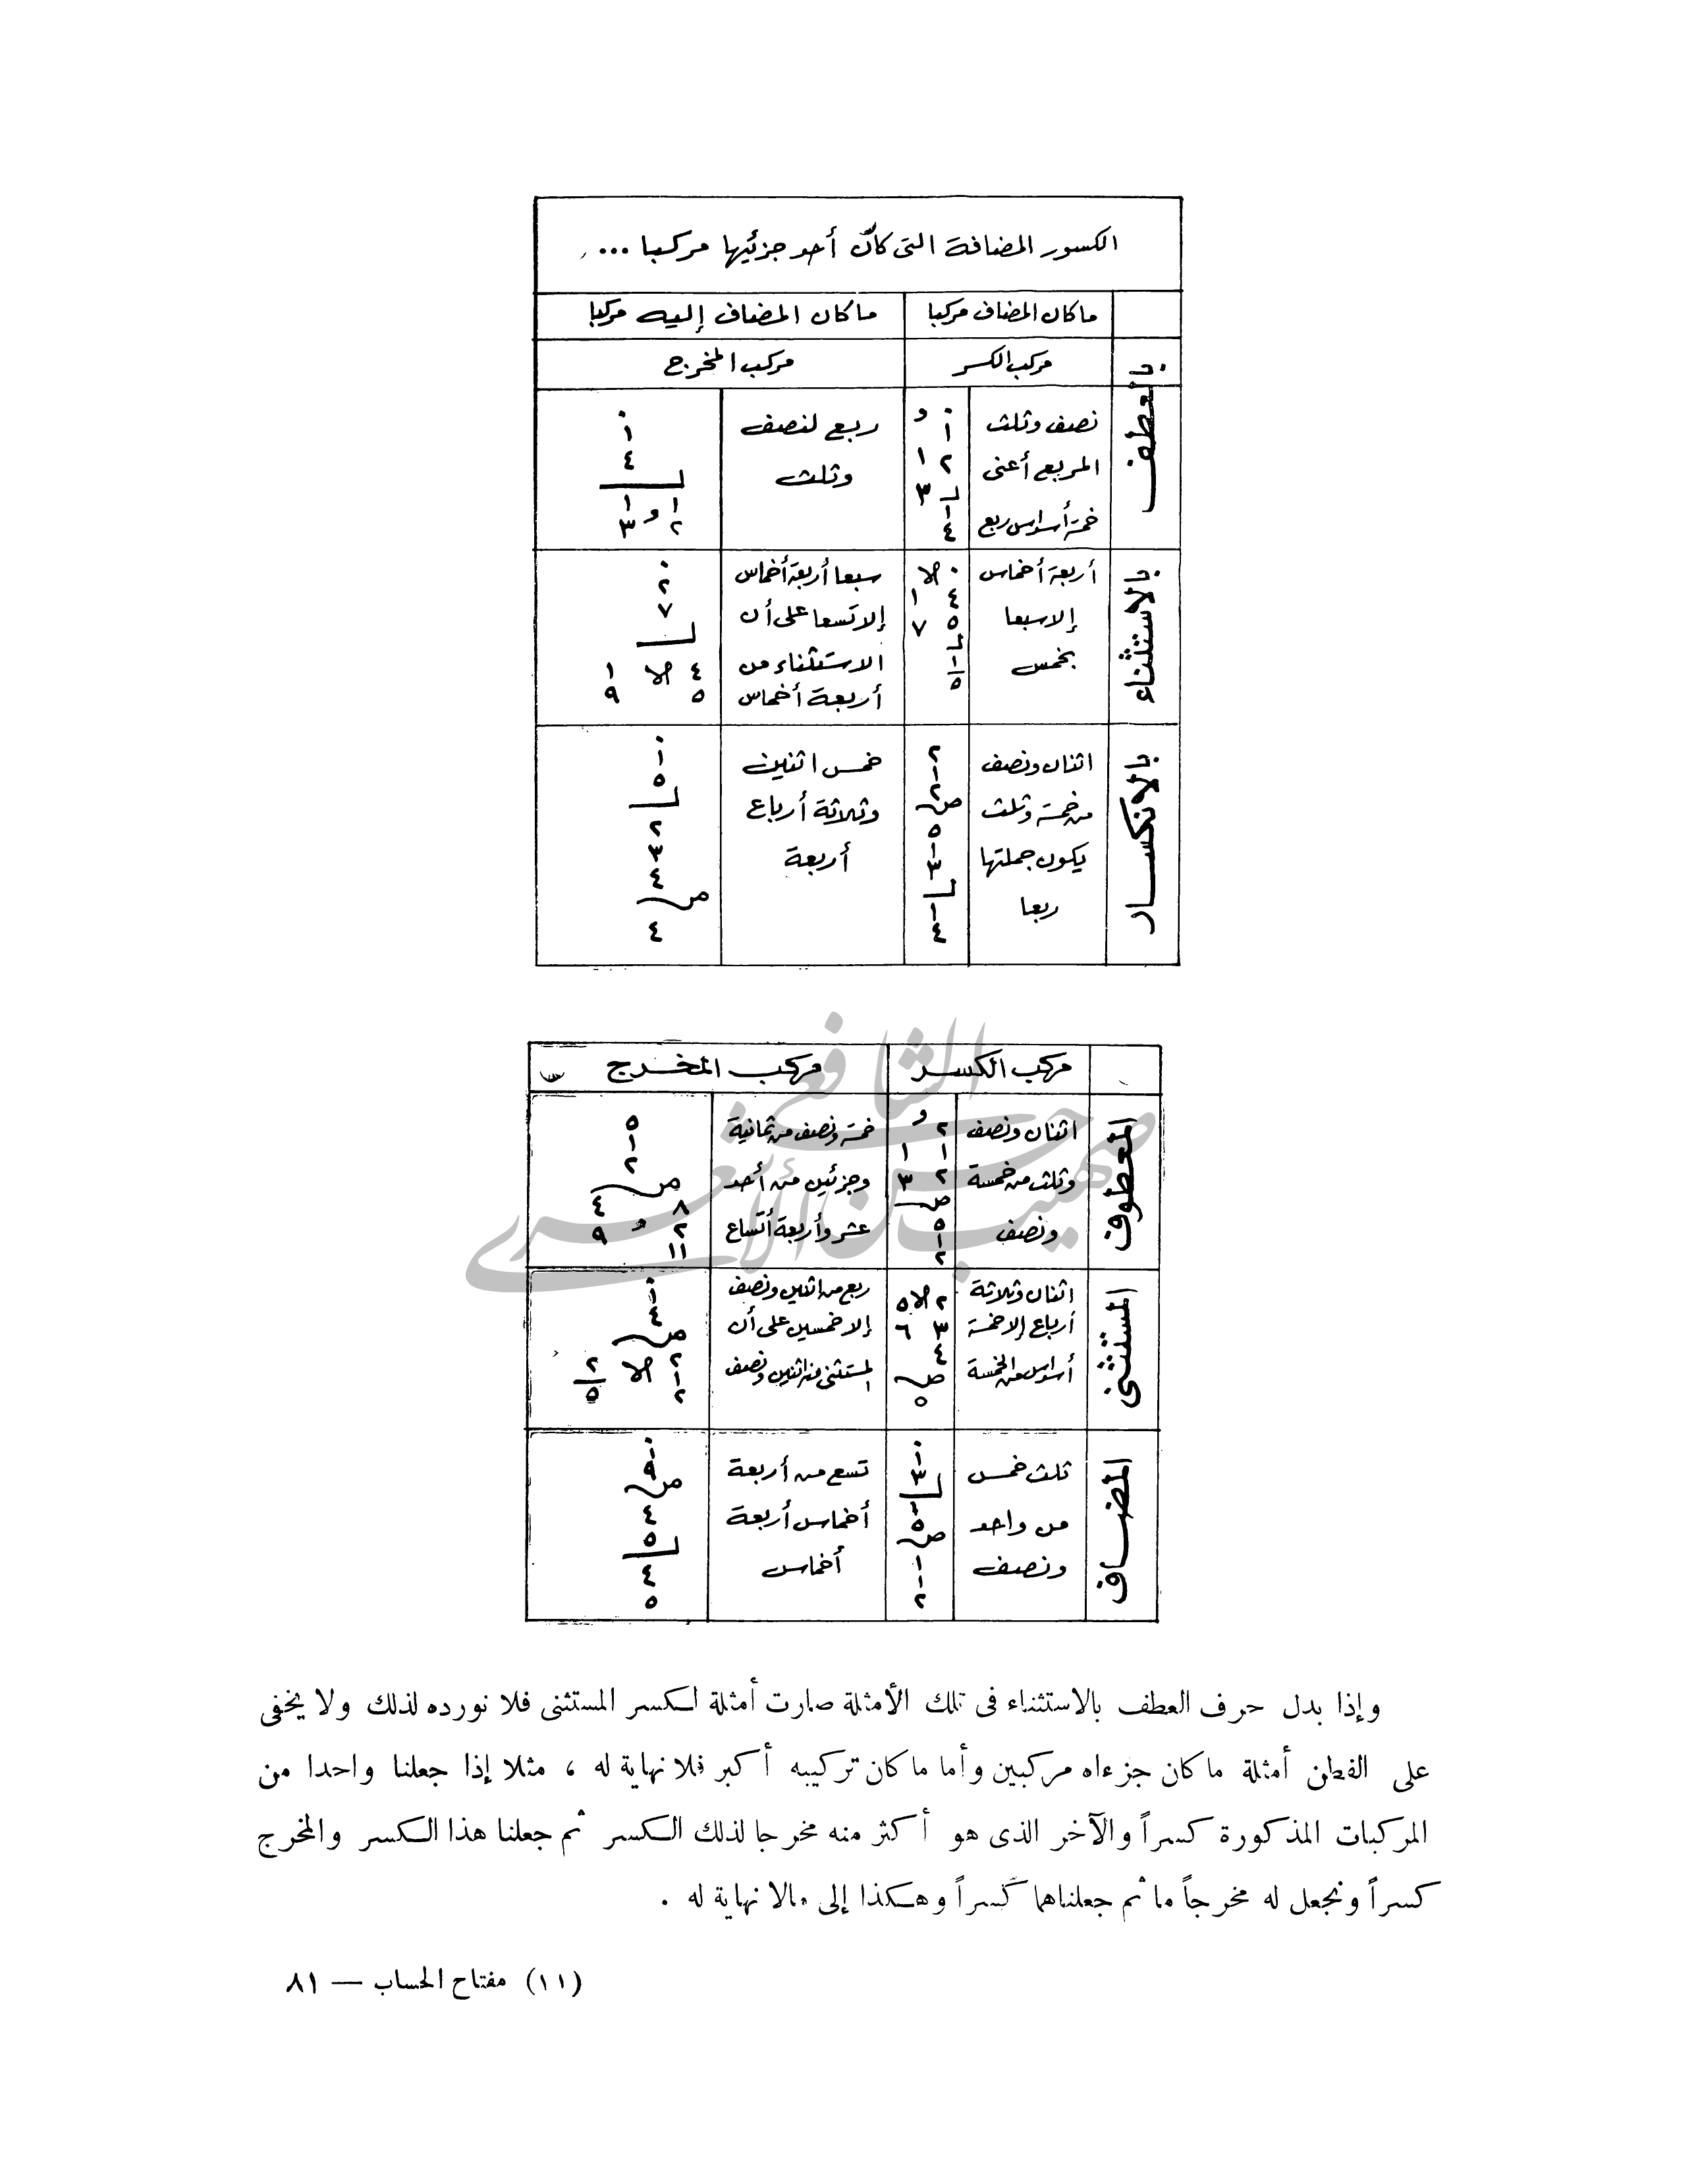 الكسور المضافة التى كان أحد جزئيها مركبا ...
ما كان المضاف مركبا
ما كان المضاف إليه مركبا
مركب الكسر
مركب المخرج
بالعطف
نصف وثلث
المربع أعنى
خمسة أسداس ربع
٠ و
١
٢ ١
٣
١
٤
ربع لنصف
وثلث
٠
١
٤
١ و ١
٢ ٣
بالاستثناء
أربعة أخماس
إلا سبعا
بخمس
٠ إلا
٤ ١
٥ ٧
١
٥
سبعا أربعة أخماس
إلا تسعا على أن
الاستثناء من
أربعة أخماس
٠
٢
٧
٤ إلا ١
٥ ٩
بالانكسار
اثنان ونصف
من خمسة وثلث
يكون جملتها
ربعا
٢
١
٢
من
٥
١
٣
١
٤
خمس اثنين
وثلاثة أرباع
أربعة
٠
١
٥
٢
٣
٤
من
٤
مركب الكسر
مركب المخرج
المعطوف
اثنان ونصف
وثلث من خمسة
ونصف
٢ و
١ ١
٢ ٣
من
٥
١
٢
خمسة ونصف من ثمانية
وجزئين من أحد
عشر وأربعة أتساع
٥
١
٢
من
٨ ٤
٢ و ٩
١١
المستثنى
اثنان وثلاثة
أرباع إلا خمسة
أسداس من الخمسة
٢ إلا ٥
٣ ٦
٤
من
٥
ربع من اثنين ونصف
إلا خمسين على أن
المستثنى منه اثنين ونصف
٠
١
٤
من
٢ إلا ٢
١ ٥
٢
المضاف
ثلث خمس
من واحد
ونصف
٠
١
٣
١
٥
من
١
١
٢
تسع من أربعة
أخماس أربعة
أخماس
٠
١
٩
من
٤
٥
٤
٥
الشافعي
صهيب حسن الأشعري
وإذا بدل حرف العطف بالاستثناء فى تلك الأمثلة صارت أمثلة لكسر المستثنى فلا نورده لذلك ولا يخفى
على الفطن أمثلة ما كان جزءاه مركبين وأما ما كان تركيبه أكبر فلا نهاية له ، مثلا إذا جعلنا واحدا من
المركبات المذكورة كسراً والآخر الذى هو أكثر منه مخرجا لذلك الكسر ثم جعلنا هذا الكسر والمخرج
كسراً ونجعل له مخرجاً ما ثم جعلناهما كسراً وهكذا إلى مالا نهاية له .
(١١) مفتاح الحساب — ٨١